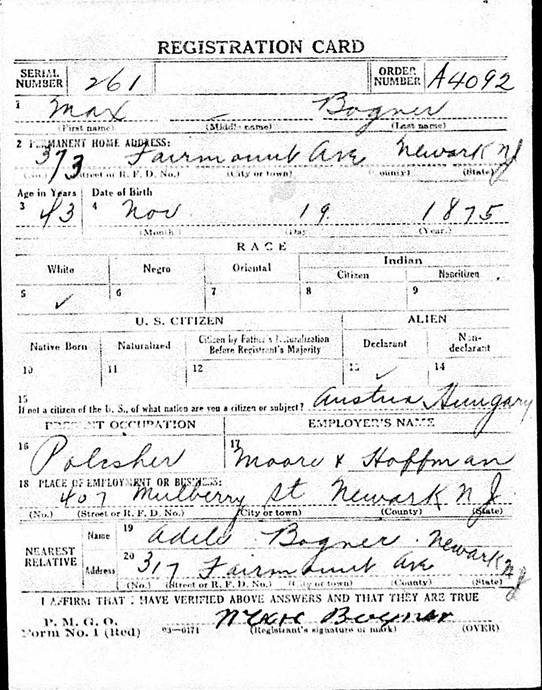 REGISTRATION CARD
SERIAL NUMBER 261 ORDER NUMBER A4092
1 Max Bogner
(First name) (Middle name) (Last name)
2 PERMANENT HOME ADDRESS:
373 Fairmount Ave Newark NJ
(No.) (Street or R. F. D. No.) (City or town) (County) (State)
Age in Years Date of Birth
3 43 4 Nov 19 1875
(Month) (Day) (Year)
RACE
White Negro Oriental Indian
Citizen Noncitizen
5 ✓ 6 7 8 9
U. S. CITIZEN ALIEN
Native Born Naturalized Citizen by Father's Naturalization Before Registrant's Majority Declarant Non-declarant
10 11 12 13 ✓ 14
15
If not a citizen of the U. S., of what nation are you a citizen or subject? Austria Hungary
PRESENT OCCUPATION EMPLOYER'S NAME
16 Polisher 17 Moore & Hoffman
18 PLACE OF EMPLOYMENT OR BUSINESS:
407 Mulberry St Newark N J.
(No.) (Street or R. F. D. No.) (City or town) (County) (State)
NEAREST RELATIVE Name 19 Adele Bogner Newark NJ
Address 20 317 Fairmount Ave
(No.) (Street or R. F. D. No.) (City or town) (County) (State)
I AFFIRM THAT I HAVE VERIFIED ABOVE ANSWERS AND THAT THEY ARE TRUE
P. M. G. O.
Form No. 1 (Red) 03-6171 Max Bogner
(Registrant's signature or mark) (OVER)